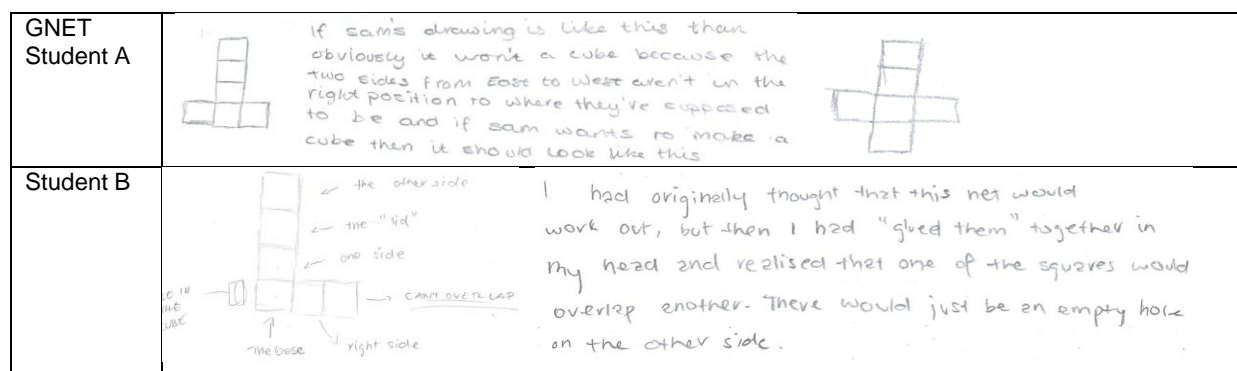 GNET
Student A
If sam's drawing is like this than
obviously it won't a cube because the
two sides from East to West aren't in the
right position to where they've supposed
to be and if sam wants to make a
cube then it should look like this
Student B
the other side
the "lid"
one side
CAN'T OVERLAP
The base
right side
I had originally thought that this net would
work out, but then I had "glued them" together in
my head and realised that one of the squares would
overlap another. There would just be an empty hole
on the other side.